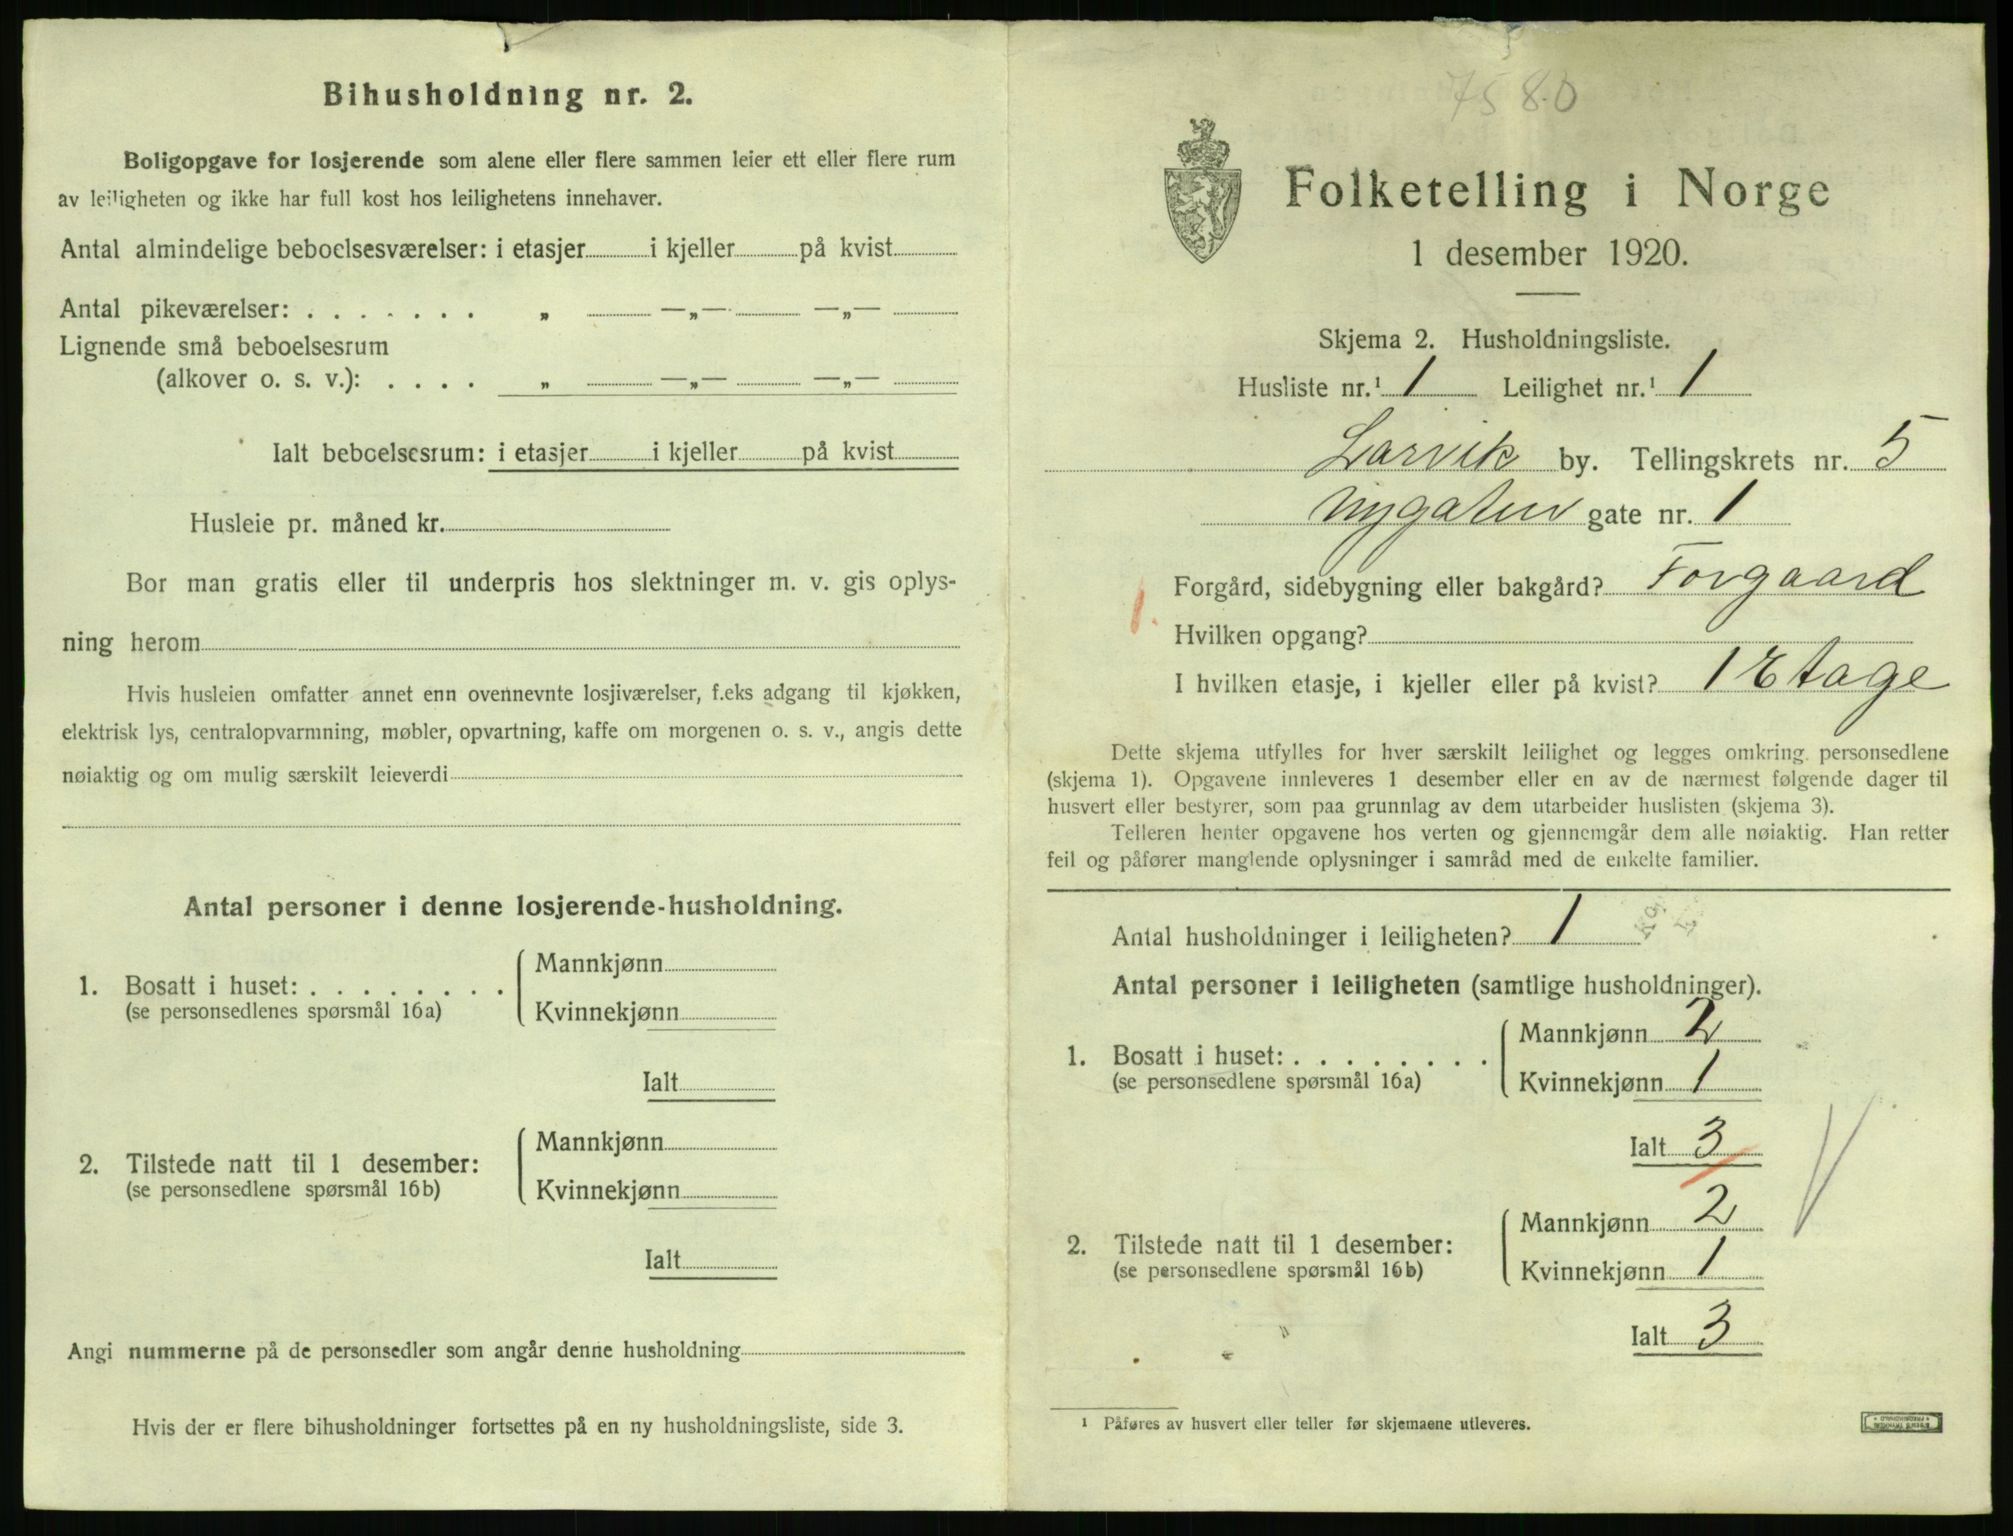 Bihusholdning nr. 2.
Boligopgave for losjerende som alene eller flere sammen leier ett eller flere rum
av leiligheten og ikke har full kost hos leilighetens innehaver.
Antal almindelige beboelsesværelser: i etasjer i kjeller på kvist
Antal pikeværelser: . . . . . . . „ —„— —„—
Lignende små beboelsesrum
(alkover o. s. v.): . . . . „ —„— —„—
Ialt beboelsesrum: i etasjer i kjeller på kvist
Husleie pr. måned kr.
Bor man gratis eller til underpris hos slektninger m. v. gis oplys-
ning herom
Hvis husleien omfatter annet enn ovennevnte losjiværelser, f.eks adgang til kjøkken,
elektrisk lys, centralopvarmning, møbler, opvartning, kaffe om morgenen o. s. v., angis dette
nøiaktig og om mulig særskilt leieverdi
Antal personer i denne losjerende-husholdning.
1. Bosatt i huset: . . . . . . . .
(se personsedlenes spørsmål 16a)
Mannkjønn
Kvinnekjønn
Ialt
2. Tilstede natt til 1 desember:
(se personsedlene spørsmål 16b)
Mannkjønn
Kvinnekjønn
Ialt
Angi nummerne på de personsedler som angår denne husholdning
Hvis der er flere bihusholdninger fortsettes på en ny husholdningsliste, side 3.
7580
Folketelling i Norge
1 desember 1920.
Skjema 2. Husholdningsliste.
Husliste nr.¹ 1 Leilighet nr.¹ 1
Larvik by. Tellingskrets nr. 5
Nygaten gate nr. 1
Forgård, sidebygning eller bakgård? Forgaard
1.
Hvilken opgang?
I hvilken etasje, i kjeller eller på kvist? 1 Etage
Dette skjema utfylles for hver særskilt leilighet og legges omkring personsedlene
(skjema 1). Opgavene innleveres 1 desember eller en av de nærmest følgende dager til
husvert eller bestyrer, som paa grunnlag av dem utarbeider huslisten (skjema 3).
Telleren henter opgavene hos verten og gjennemgår dem alle nøiaktig. Han retter
feil og påfører manglende oplysninger i samråd med de enkelte familier.
Antal husholdninger i leiligheten? 1
Antal personer i leiligheten (samtlige husholdninger).
1. Bosatt i huset: . . . . . . . .
(se personsedlene spørsmål 16a)
Mannkjønn 2
Kvinnekjønn 1
Ialt 3
2. Tilstede natt til 1 desember:
(se personsedlene spørsmål 16b)
Mannkjønn 2
Kvinnekjønn 1
Ialt 3
¹ Påføres av husvert eller teller før skjemaene utleveres.